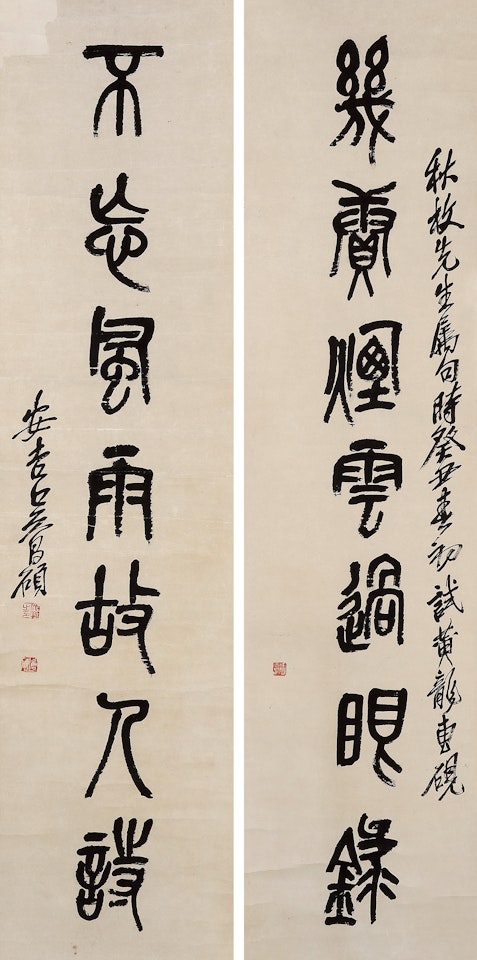 秋枚先生屬句時癸丑春初試黄龍專硯
幾賡煙雲過眼錄
不忘風雨故人詩
安吉吳昌碩